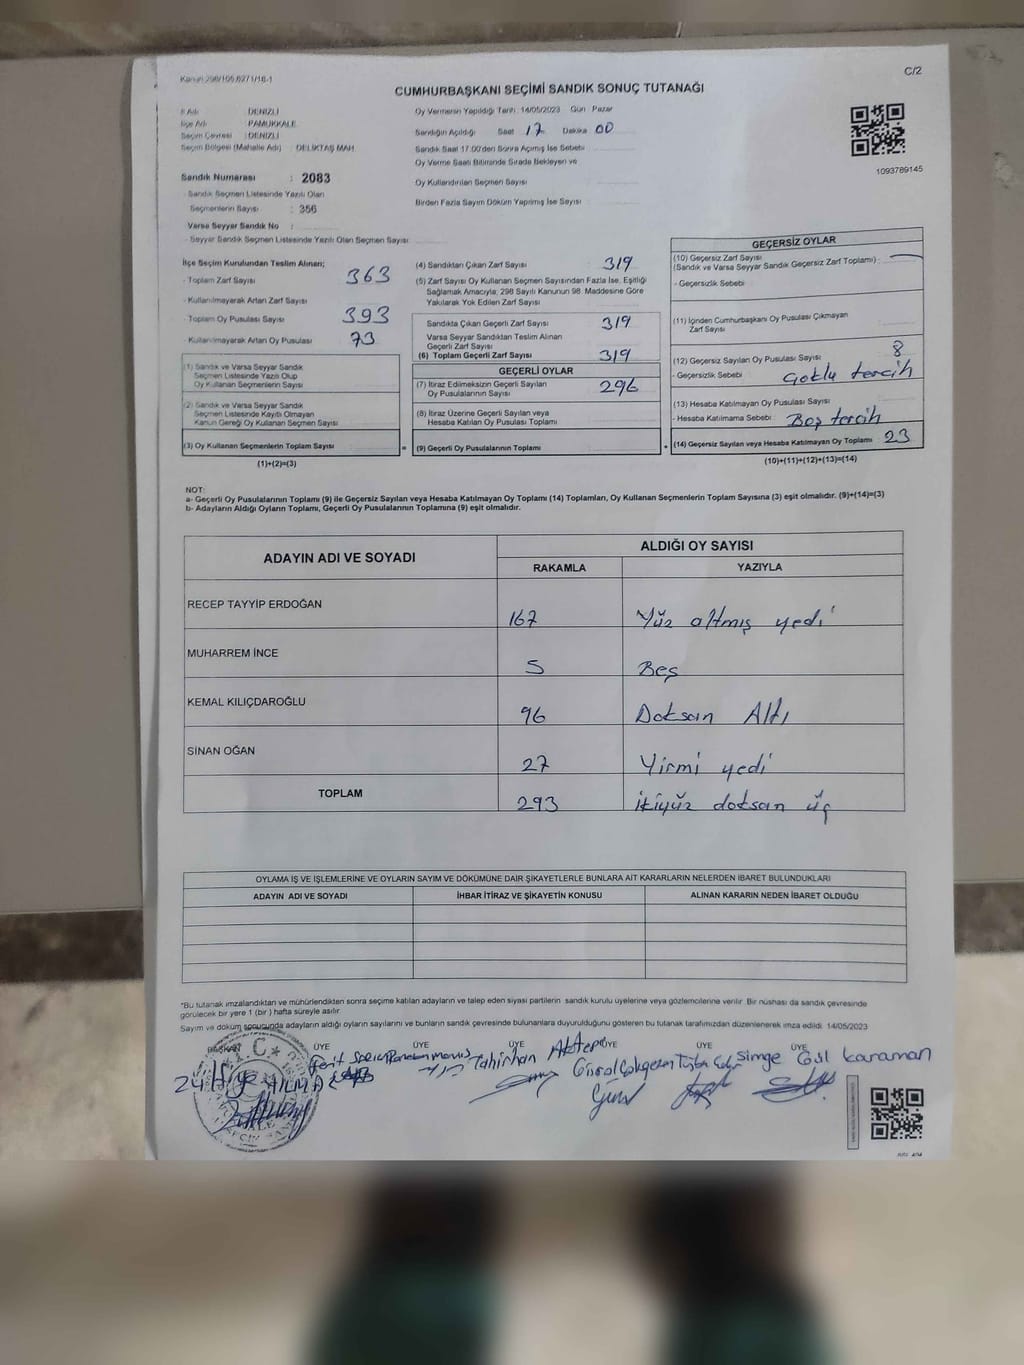 Kanun 298/105,6271/16-1
C/2
CUMHURBAŞKANI SEÇİMİ SANDIK SONUÇ TUTANAĞI
İl Adı : DENİZLİ
İlçe Adı : PAMUKKALE
Seçim Çevresi : DENİZLİ
Seçim Bölgesi (Mahalle Adı) : DELİKTAŞ MAH.
Sandık Numarası : 2083
- Sandık Seçmen Listesinde Yazılı Olan
Seçmenlerin Sayısı : 356
Varsa Seyyar Sandık No :
- Seyyar Sandık Seçmen Listesinde Yazılı Olan Seçmen Sayısı
Oy Vermenin Yapıldığı Tarih: 14/05/2023 Gün Pazar
Sandığın Açıldığı Saat 17 Dakika 00
Sandık Saat 17.00'den Sonra Açılmış İse Sebebi
Oy Verme Saati Bitiminde Sırada Bekleyen ve
Oy Kullandırılan Seçmen Sayısı
Birden Fazla Sayım Döküm Yapılmış İse Sayısı
1093789145
İlçe Seçim Kurulundan Teslim Alınan;
- Toplam Zarf Sayısı 363
- Kullanılmayarak Artan Zarf Sayısı
- Toplam Oy Pusulası Sayısı 393
- Kullanılmayarak Artan Oy Pusulası 73
(1) Sandık ve Varsa Seyyar Sandık
Seçmen Listesinde Yazılı Olup
Oy Kullanan Seçmenlerin Sayısı
(2) Sandık ve Varsa Seyyar Sandık
Seçmen Listesinde Kayıtlı Olmayan
Kanun Gereği Oy Kullanan Seçmen Sayısı
(3) Oy Kullanan Seçmenlerin Toplam Sayısı =
(1)+(2)=(3)
(4) Sandıktan Çıkan Zarf Sayısı 319
(5) Zarf Sayısı Oy Kullanan Seçmen Sayısından Fazla İse, Eşitliği
Sağlamak Amacıyla; 298 Sayılı Kanunun 98. Maddesine Göre
Yakılarak Yok Edilen Zarf Sayısı
Sandıkta Çıkan Geçerli Zarf Sayısı 319
Varsa Seyyar Sandıktan Teslim Alınan
Geçerli Zarf Sayısı
(6) Toplam Geçerli Zarf Sayısı 319
GEÇERLİ OYLAR
(7) İtiraz Edilmeksizin Geçerli Sayılan
Oy Pusulalarının Sayısı 296
(8) İtiraz Üzerine Geçerli Sayılan veya
Hesaba Katılan Oy Pusulası Toplamı
(9) Geçerli Oy Pusulalarının Toplamı +
GEÇERSİZ OYLAR
(10) Geçersiz Zarf Sayısı
(Sandık ve Varsa Seyyar Sandık Geçersiz Zarf Toplamı) :
- Geçersizlik Sebebi
(11) İçinden Cumhurbaşkanı Oy Pusulası Çıkmayan
Zarf Sayısı
(12) Geçersiz Sayılan Oy Pusulası Sayısı 8
- Geçersizlik Sebebi Çoklu tercih
(13) Hesaba Katılmayan Oy Pusulası Sayısı
- Hesaba Katılmama Sebebi : Boş tercih
(14) Geçersiz Sayılan veya Hesaba Katılmayan Oy Toplamı 23
(10)+(11)+(12)+(13)=(14)
NOT:
a- Geçerli Oy Pusulalarının Toplamı (9) ile Geçersiz Sayılan veya Hesaba Katılmayan Oy Toplamı (14) Toplamları, Oy Kullanan Seçmenlerin Toplam Sayısına (3) eşit olmalıdır. (9)+(14)=(3)
b- Adayların Aldığı Oyların Toplamı, Geçerli Oy Pusulalarının Toplamına (9) eşit olmalıdır.
ADAYIN ADI VE SOYADI
ALDIĞI OY SAYISI
RAKAMLA YAZIYLA
RECEP TAYYİP ERDOĞAN 167 Yüz altmış yedi
MUHARREM İNCE 5 Beş
KEMAL KILIÇDAROĞLU 96 Doksan Altı
SİNAN OĞAN 27 Yirmi yedi
TOPLAM 293 ikiyüz doksan üç
OYLAMA İŞ VE İŞLEMLERİNE VE OYLARIN SAYIM VE DÖKÜMÜNE DAİR ŞİKAYETLERLE BUNLARA AİT KARARLARIN NELERDEN İBARET BULUNDUKLARI
ADAYIN ADI VE SOYADI İHBAR İTİRAZ VE ŞİKAYETİN KONUSU ALINAN KARARIN NEDEN İBARET OLDUĞU
*Bu tutanak imzalandıktan ve mühürlendikten sonra seçime katılan adayların ve talep eden siyasi partilerin sandık kurulu üyelerine veya gözlemcilerine verilir. Bir nüshası da sandık çevresinde
görülecek bir yere 1 (bir) hafta süreyle asılır.
Sayım ve döküm sonucunda adayların aldığı oyların sayılarını ve bunların sandık çevresinde bulunanlara duyurulduğunu gösteren bu tutanak tarafımızdan düzenlenerek imza edildi. 14/05/2023
BAŞKAN ÜYE ÜYE ÜYE ÜYE ÜYE ÜYE
Tahirhan Aktepe
Simge Gül Karaman